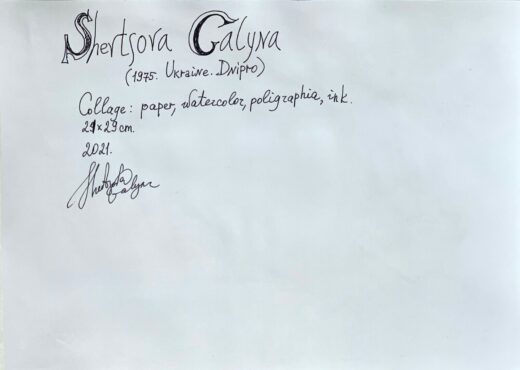 Shertsova Galyna
(1975. Ukraine. Dnipro)
Collage: paper, watercolor, poligraphia, ink.
29x29cm.
2021.
Shertsova
Galyna